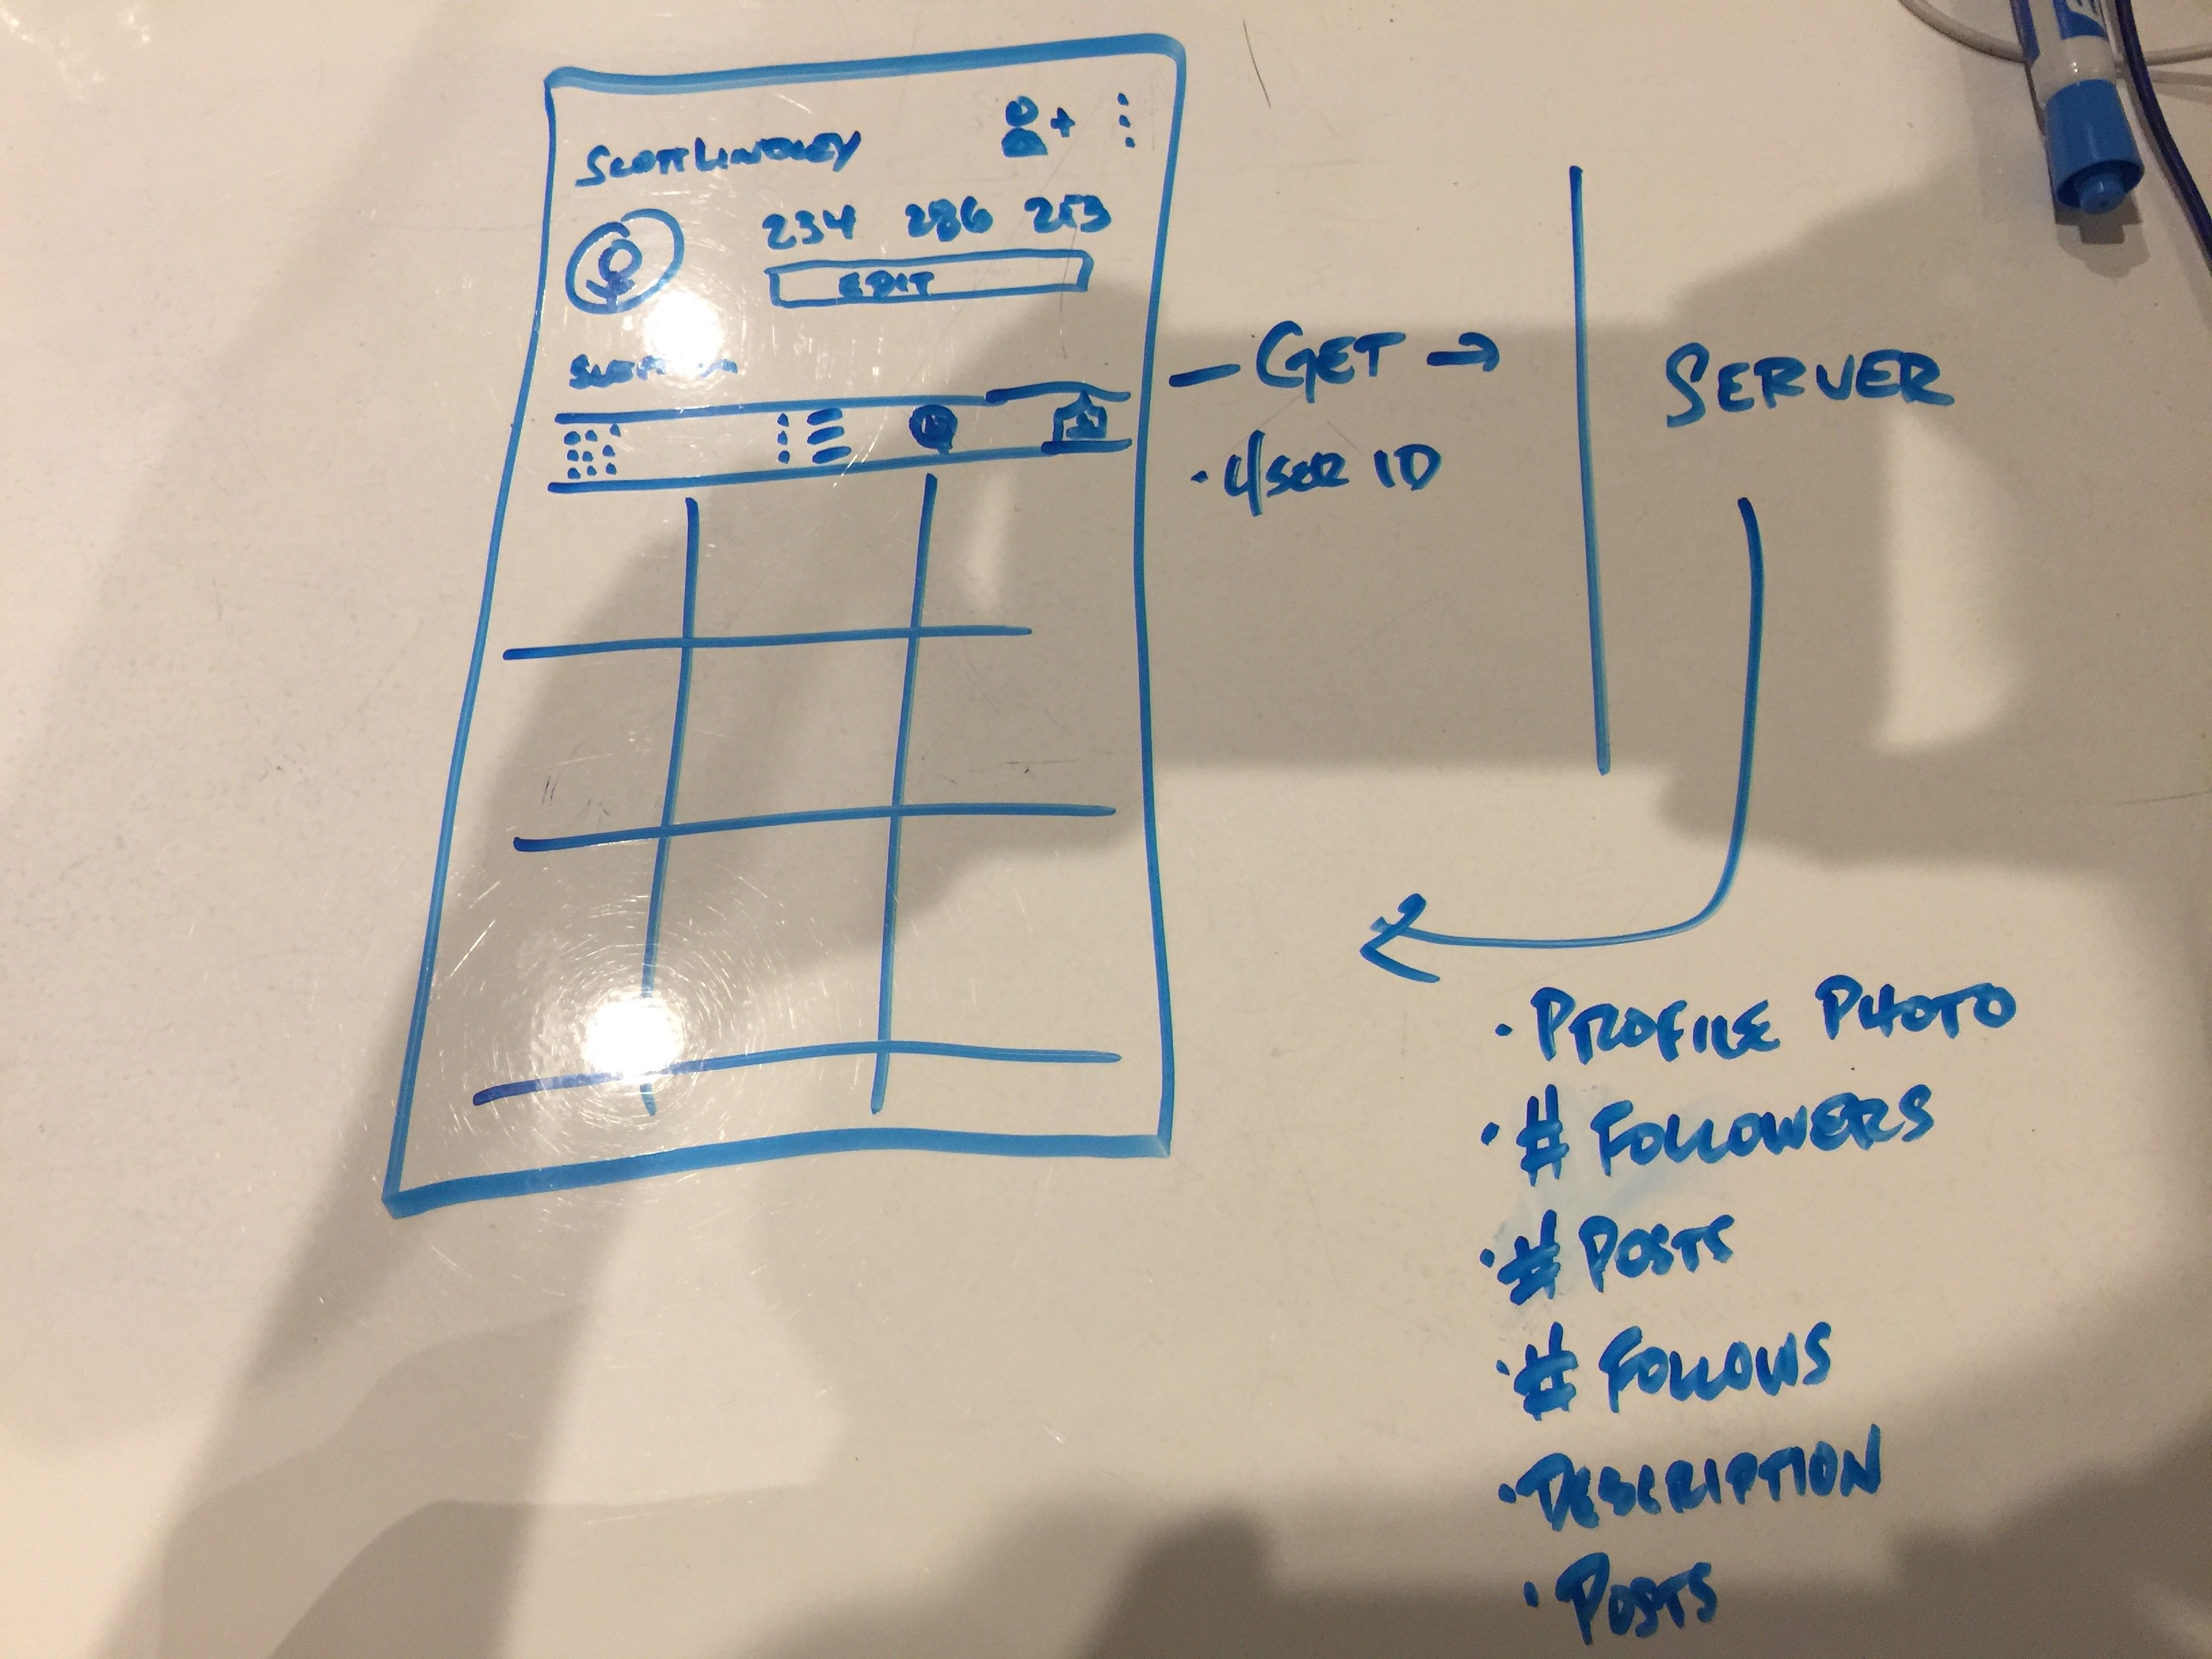 SCOTTLINDLEY
234 286 253
EDIT
- GET →
· USER ID
SERVER
· PROFILE PHOTO
· # FOLLOWERS
· # POSTS
· # FOLLOWS
· DESCRIPTION
· POSTS